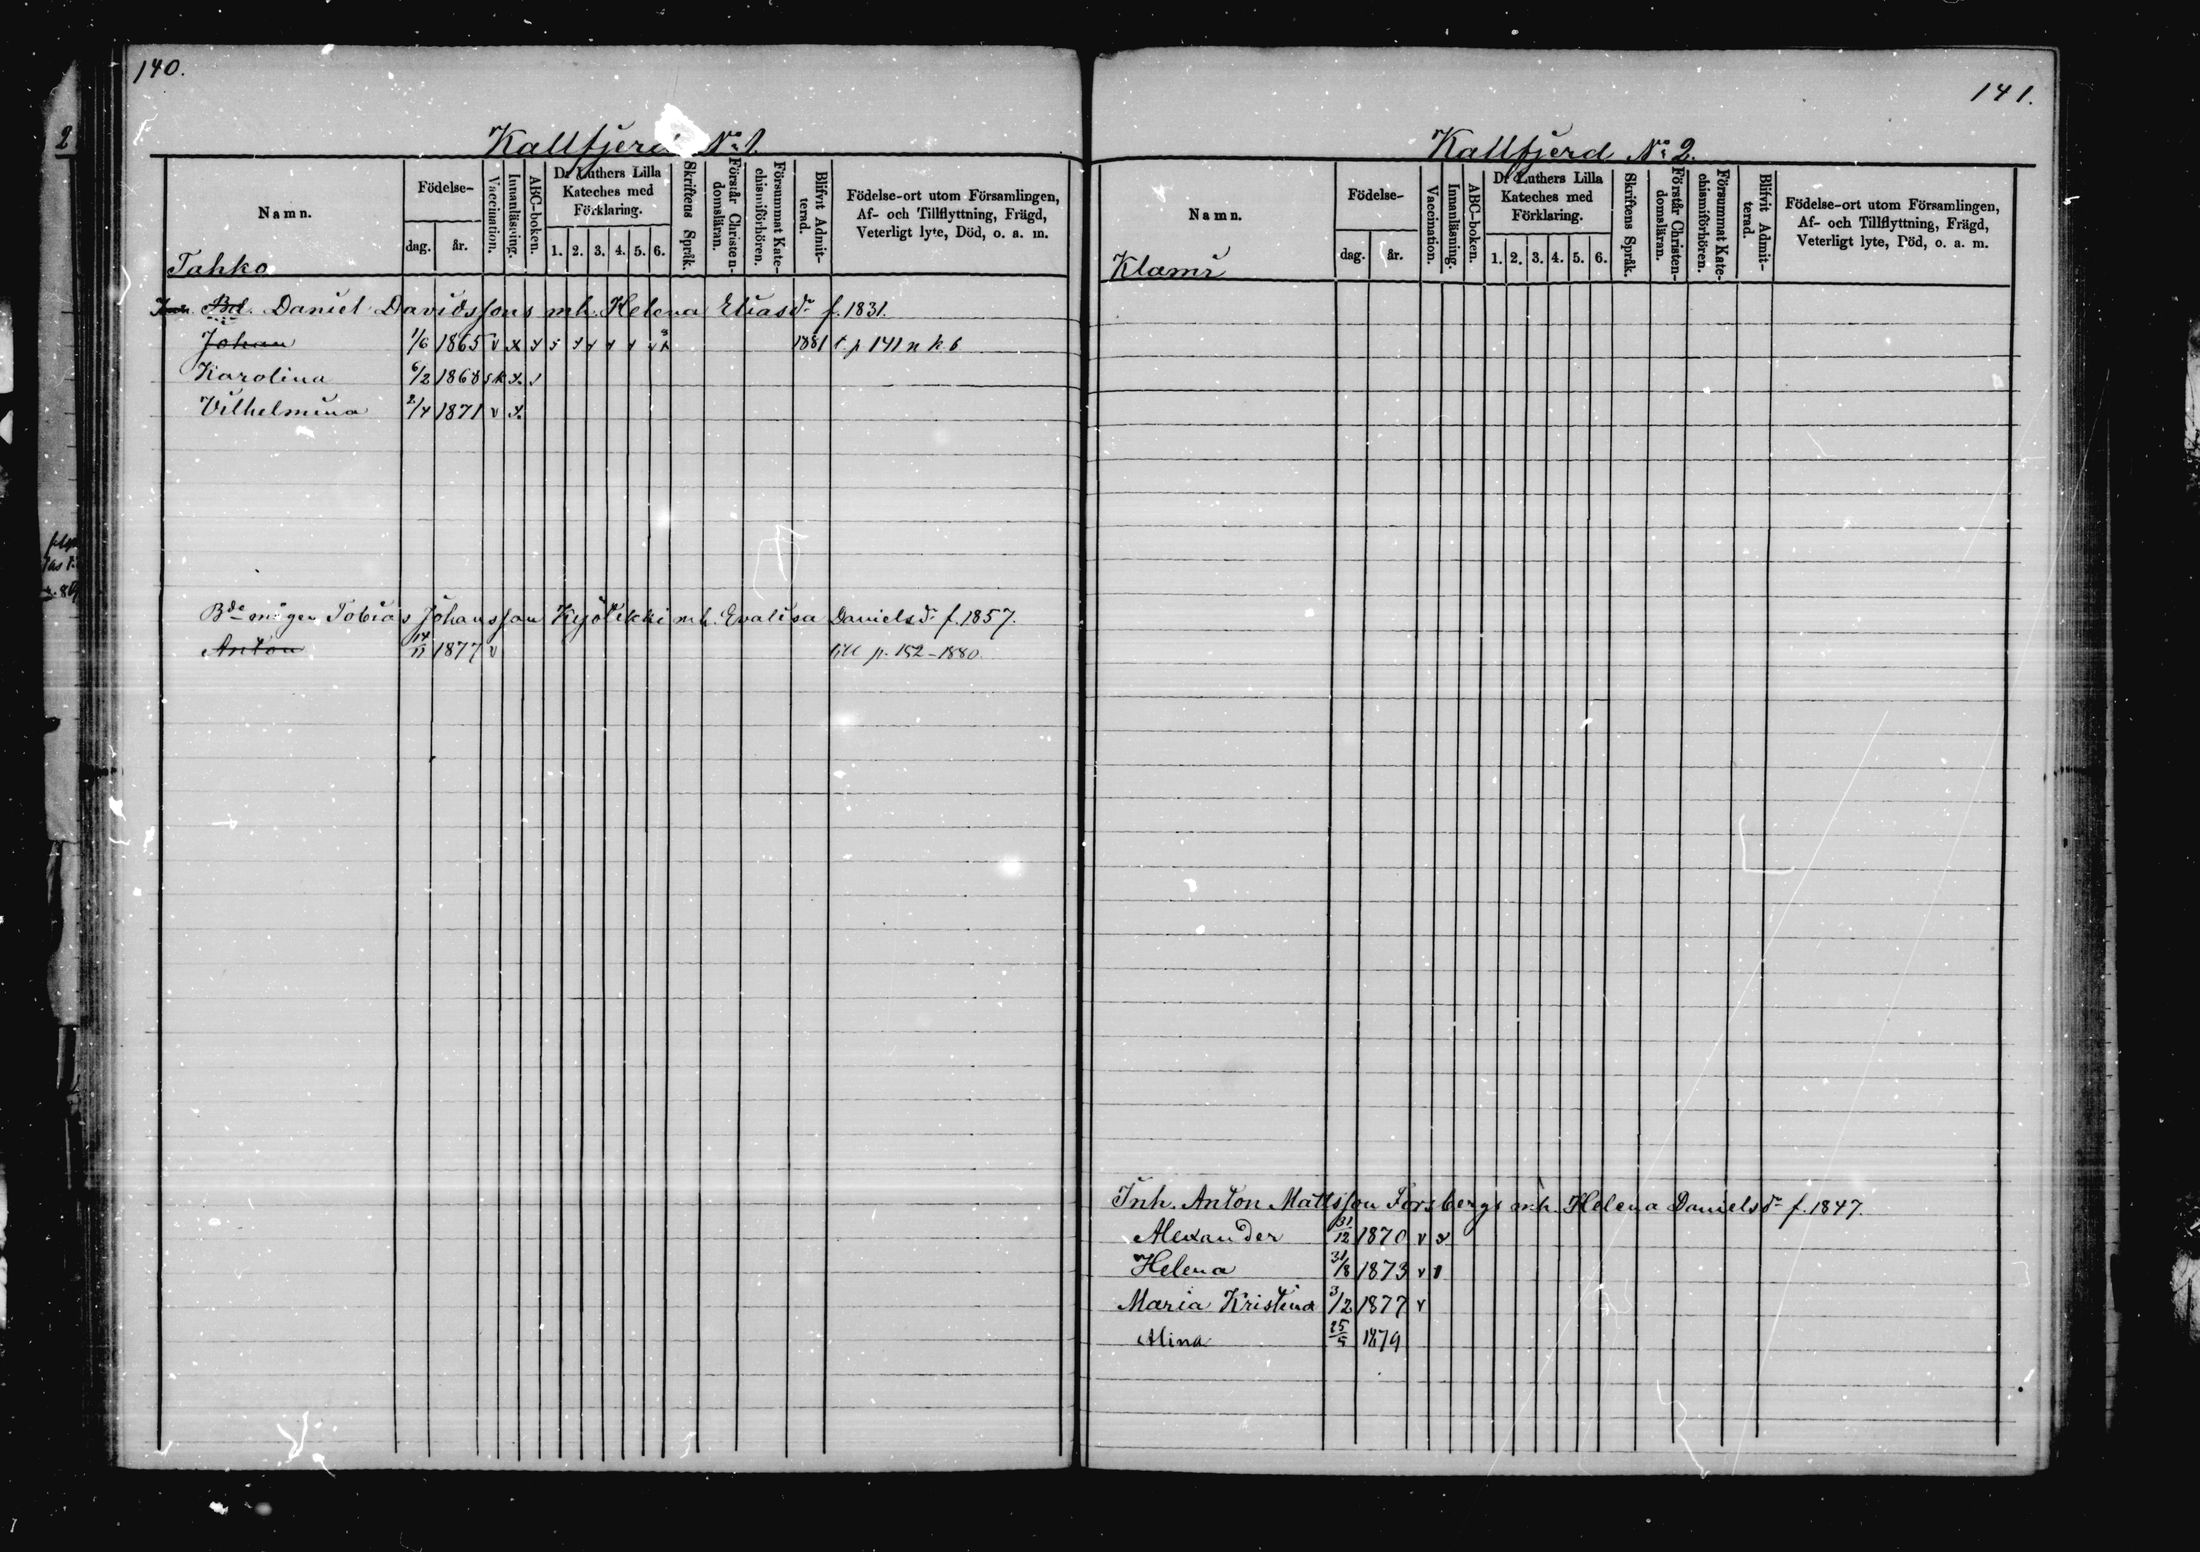 140.
Kallfjerd No 1.
Namn.
Födelse-
dag.
år.
Vaccination.
Innanläsning.
ABC-boken.
Dr Luthers Lilla
Kateches med
Förklaring.
1. 2. 3. 4. 5. 6.
Skriftens Språk.
Förstår Christen-
domsläran.
Försummat Kate-
chismiförhören.
Blifvit Admit-
terad.
Födelse-ort utom Församlingen,
Af- och Tillflyttning, Frägd,
Veterligt lyte, Död, o. a. m.
Tahko
Bd. Daniel Davidssons m h. Helena Eliasdr f. 1831.
Johan 1/6 1865 v x 1881 t. p 141 n k b
Karolina 6/2 1868 s k x
Vilhelmina 2/4 1871 v x
Bde mågen Tobias Johansson Kyölikki m h. Evalisa Danielsdr f. 1857.
Anton 14/11 1877 v till p. 152-1880.
141.
Kallfjerd No 2.
Namn.
Födelse-
dag.
år.
Vaccination.
Innanläsning.
ABC-boken.
Dr Luthers Lilla
Kateches med
Förklaring.
1. 2. 3. 4. 5. 6.
Skriftens Språk.
Förstår Christen-
domsläran.
Försummat Kate-
chismiförhören.
Blifvit Admit-
terad.
Födelse-ort utom Församlingen,
Af- och Tillflyttning, Frägd,
Veterligt lyte, Död, o. a. m.
Klami
Inh. Anton Mattsson Forsbergs m h. Helena Danielsdr f. 1847.
Alexander 31/12 1870 v x
Helena 31/8 1873 v
Maria Kristina 3/2 1877 v
Mina 25/5 1879